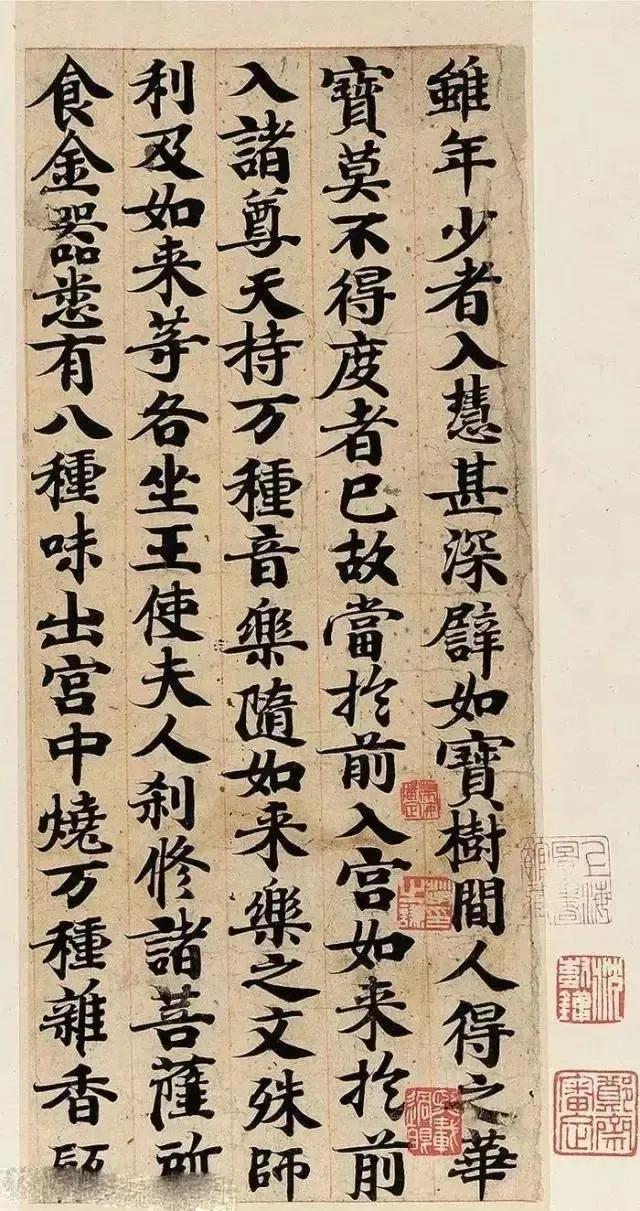 雖年少者入慧甚深辟如寶樹間人得之華
寶莫不得度者已故當扵前入宫如来扵前
入諸尊天持万種音樂隨如来樂之文殊師
利及如来等各坐王使夫人刹修諸菩薩所
食金器悉有八種味出宫中燒万種雜香